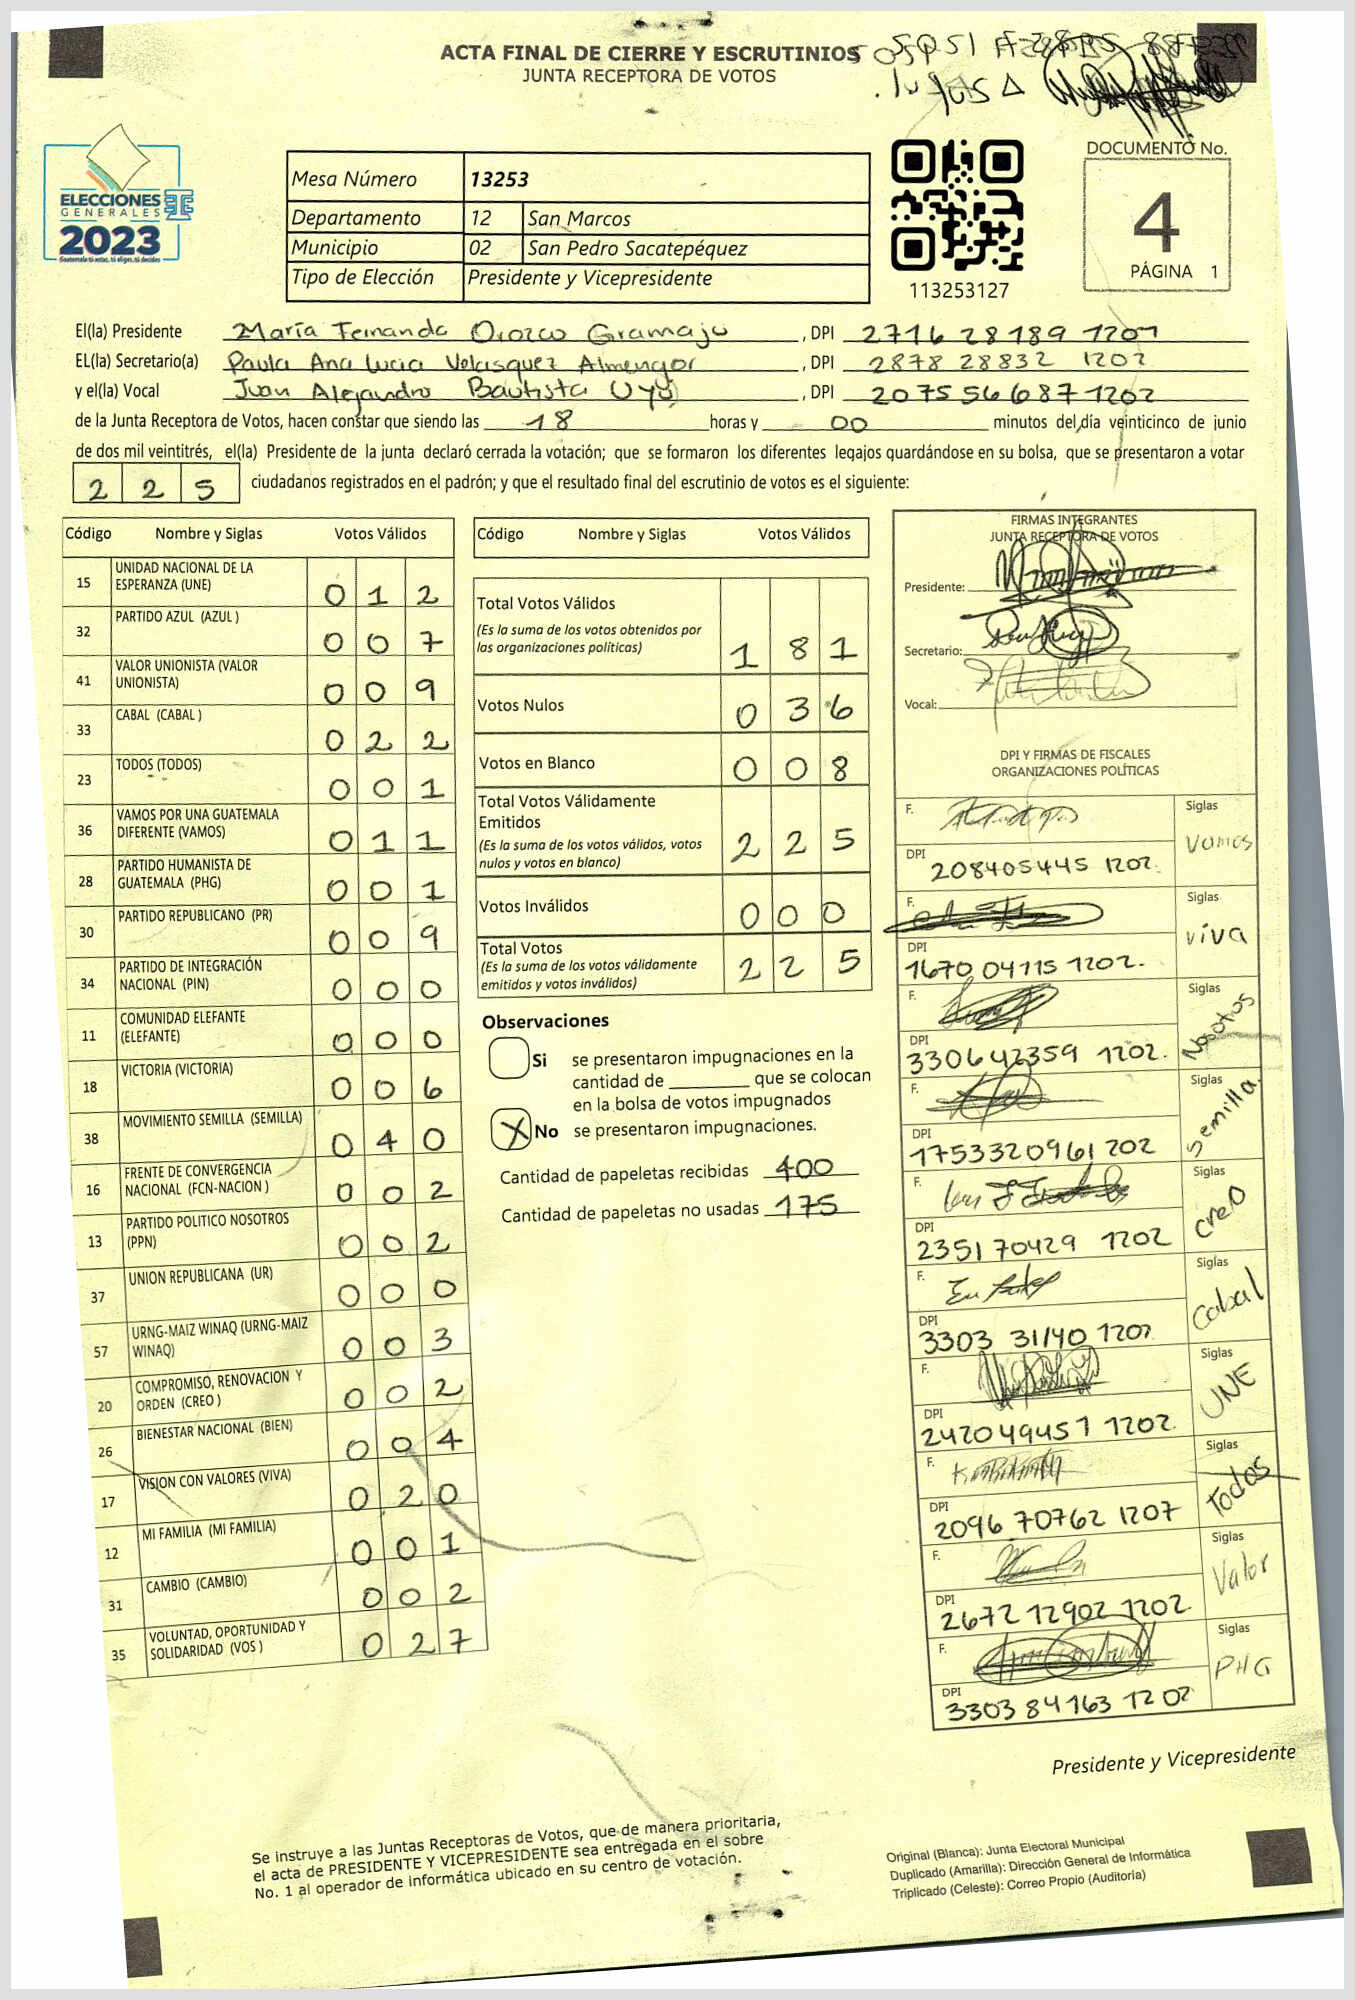 ACTA FINAL DE CIERRE Y ESCRUTINIOS
JUNTA RECEPTORA DE VOTOS
ELECCIONES
GENERALES
2023
Guatemala tú votas, tú eliges, tú decides
Mesa Número 13253
Departamento 12 San Marcos
Municipio 02 San Pedro Sacatepéquez
Tipo de Elección Presidente y Vicepresidente
113253127
DOCUMENTO No.
4
PÁGINA 1
El(la) Presidente María Fernanda Orozco Gramajo , DPI 2716 28189 1201
EL(la) Secretario(a) Paula Ana Lucia Velasquez Almengor , DPI 2878 28832 1202
y el(la) Vocal Juan Alejandro Bautista Uyú , DPI 2075 56687 1202
de la Junta Receptora de Votos, hacen constar que siendo las 18 horas y 00 minutos del día veinticinco de junio
de dos mil veintitrés, el(la) Presidente de la junta declaró cerrada la votación; que se formaron los diferentes legajos quardándose en su bolsa, que se presentaron a votar
2 2 5 ciudadanos registrados en el padrón; y que el resultado final del escrutinio de votos es el siguiente:
Código Nombre y Siglas Votos Válidos
15 UNIDAD NACIONAL DE LA ESPERANZA (UNE) 0 1 2
32 PARTIDO AZUL (AZUL ) 0 0 7
41 VALOR UNIONISTA (VALOR UNIONISTA) 0 0 9
33 CABAL (CABAL ) 0 2 2
23 TODOS (TODOS) 0 0 1
36 VAMOS POR UNA GUATEMALA DIFERENTE (VAMOS) 0 1 1
28 PARTIDO HUMANISTA DE GUATEMALA (PHG) 0 0 1
30 PARTIDO REPUBLICANO (PR) 0 0 9
34 PARTIDO DE INTEGRACIÓN NACIONAL (PIN) 0 0 0
11 COMUNIDAD ELEFANTE (ELEFANTE) 0 0 0
18 VICTORIA (VICTORIA) 0 0 6
38 MOVIMIENTO SEMILLA (SEMILLA) 0 4 0
16 FRENTE DE CONVERGENCIA NACIONAL (FCN-NACION ) 0 0 2
13 PARTIDO POLITICO NOSOTROS (PPN) 0 0 2
37 UNION REPUBLICANA (UR) 0 0 0
57 URNG-MAIZ WINAQ (URNG-MAIZ WINAQ) 0 0 3
20 COMPROMISO, RENOVACION Y ORDEN (CREO ) 0 0 2
26 BIENESTAR NACIONAL (BIEN) 0 0 4
17 VISION CON VALORES (VIVA) 0 2 0
12 MI FAMILIA (MI FAMILIA) 0 0 1
31 CAMBIO (CAMBIO) 0 0 2
35 VOLUNTAD, OPORTUNIDAD Y SOLIDARIDAD (VOS ) 0 2 7
Código Nombre y Siglas Votos Válidos
Total Votos Válidos
(Es la suma de los votos obtenidos por
las organizaciones políticas) 1 8 1
Votos Nulos 0 3 6
Votos en Blanco 0 0 8
Total Votos Válidamente
Emitidos
(Es la suma de los votos válidos, votos
nulos y votos en blanco) 2 2 5
Votos Inválidos 0 0 0
Total Votos
(Es la suma de los votos válidamente
emitidos y votos inválidos) 2 2 5
Observaciones
Si se presentaron impugnaciones en la
cantidad de ________ que se colocan
en la bolsa de votos impugnados
X No se presentaron impugnaciones.
Cantidad de papeletas recibidas 400
Cantidad de papeletas no usadas 175
FIRMAS INTEGRANTES
JUNTA RECEPTORA DE VOTOS
Presidente:
Secretario:
Vocal:
DPI Y FIRMAS DE FISCALES
ORGANIZACIONES POLÍTICAS
F. Siglas
Vamos
DPI
208405445 1202.
F. Siglas
viva
DPI
1670 04115 1202.
F. Siglas
Nosotros
DPI
330642359 1202.
F. Siglas
Semilla.
DPI
1753320961 202
F. Siglas
creo
DPI
2351 70429 1202
F. Siglas
Cabal
DPI
3303 31140 1202
F. Siglas
UNE
DPI
242049457 1202.
F. Siglas
Todos
DPI
2096 70762 1207
F. Siglas
Valor
DPI
2672 12902 1202.
F. Siglas
PHG
DPI
3303 84163 1202
Presidente y Vicepresidente
Se instruye a las Juntas Receptoras de Votos, que de manera prioritaria,
el acta de PRESIDENTE Y VICEPRESIDENTE sea entregada en el sobre
No. 1 al operador de informática ubicado en su centro de votación.
Original (Blanca): Junta Electoral Municipal
Duplicado (Amarilla): Dirección General de Informática
Triplicado (Celeste): Correo Propio (Auditoría)